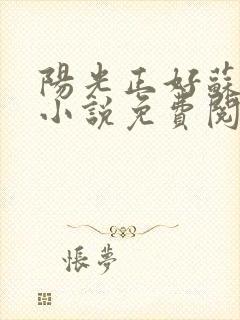 陽光正好蘇
小說免費閱
悵夢